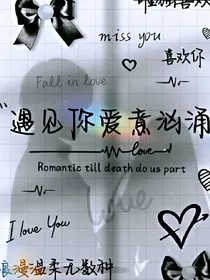 miss you
喜欢你
Fall in love
"遇见你爱意汹涌
love
Romantic till death do us part
Love
I love You
浪漫温柔无数种